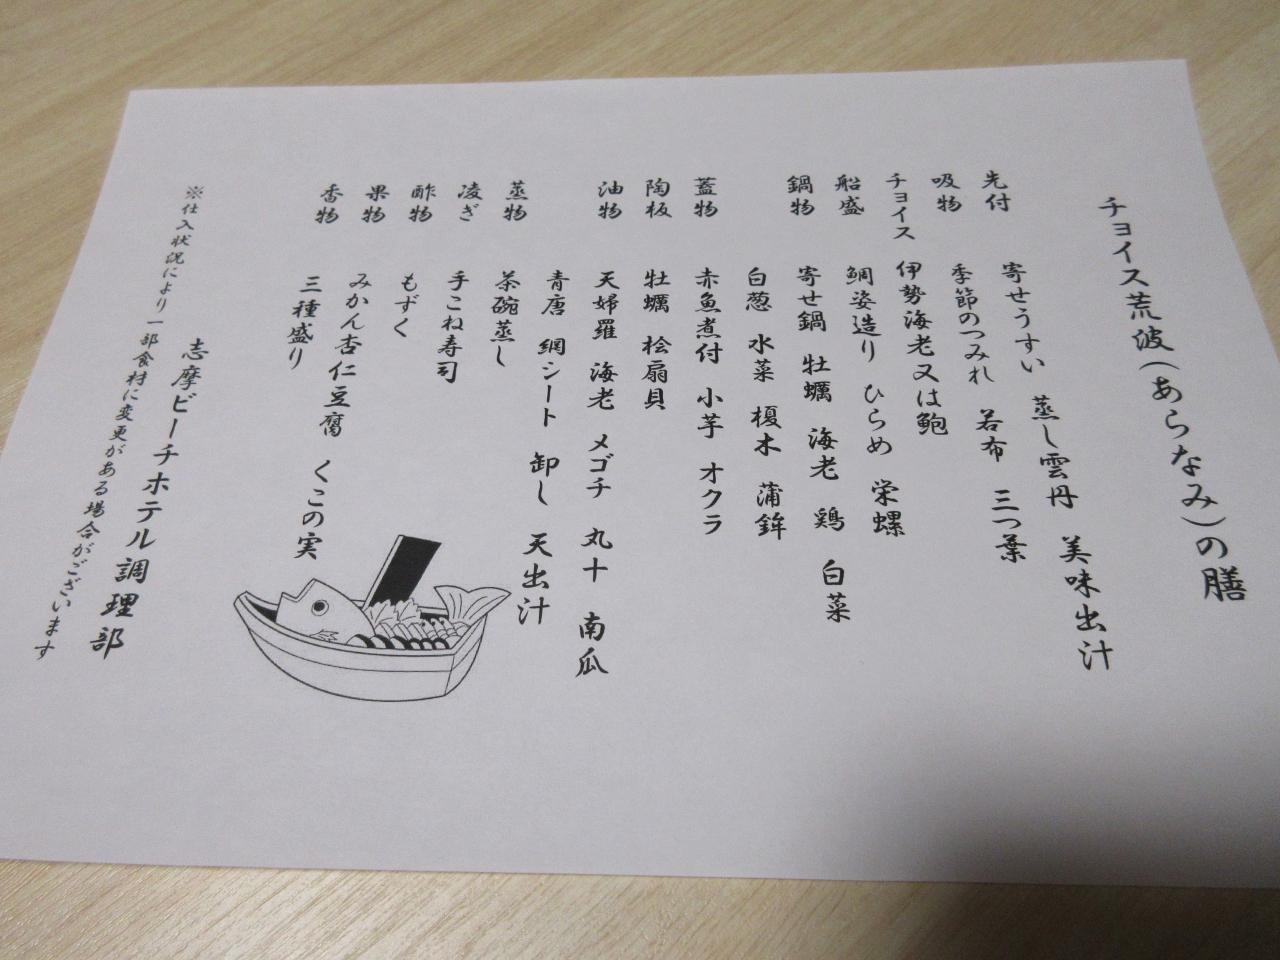 チョイス荒波(あらなみ)の膳
先付 寄せうすい 蒸し雲丹 美味出汁
吸物 季節のつみれ 若布 三つ葉
チョイス 伊勢海老又は鮑
船盛 鯛姿造り ひらめ 栄螺
鍋物 寄せ鍋 牡蠣 海老 鶏 白菜
白葱 水菜 榎木 蒲鉾
蓋物 赤魚煮付 小芋 オクラ
陶板 牡蠣 桧扇貝
油物 天婦羅 海老 メゴチ 丸十 南瓜
青唐 網シート 卸し 天出汁
蒸物 茶碗蒸し
凌ぎ 手こね寿司
酢物 もずく
果物 みかん杏仁豆腐 くこの実
香物 三種盛り
志摩ビーチホテル調理部
※仕入状況により一部食材に変更がある場合がございます